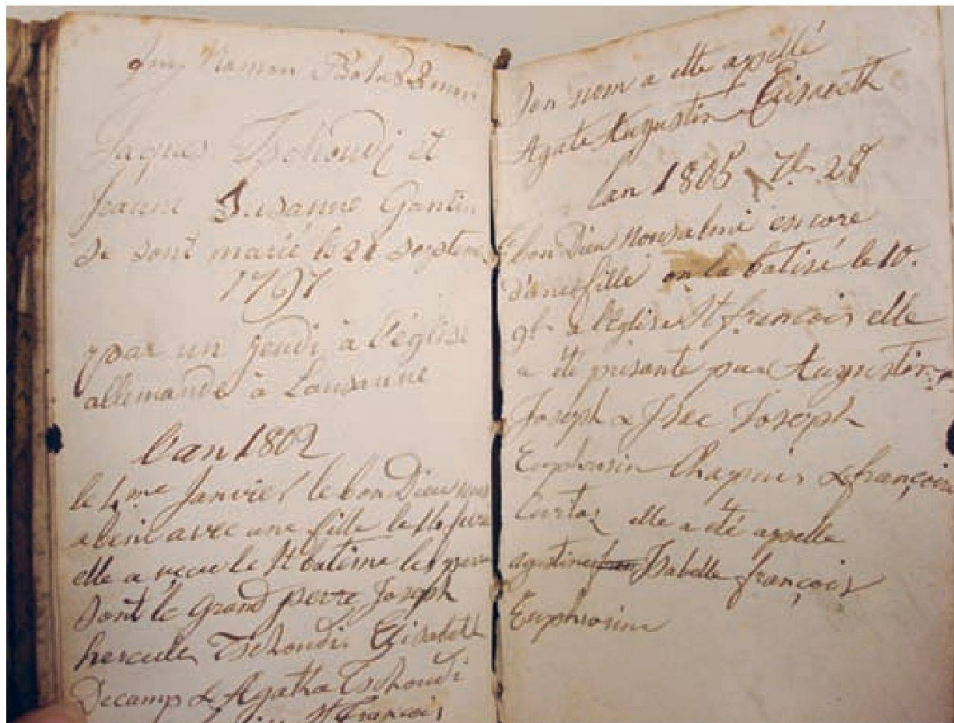 Jaques Tschoudi et
Jeanne Susanne Gantin
se sont marié le 21 septem
1797
par un jeudi à l'église
allemande à Lausanne
l'an 1802
le 4me Janvier le bon Dieu nous
a beni avec une fille le 14
elle a recu le St batême les
sont le grand perre Joseph
hercule Tschoudi Elisabeth
Decamp & Agatha Tschoudi
St François
son nom a ette appellé
Agate Augustin Elisabeth
lan 1805 28
bon Dieu nous a beni encore
d'une fille on la batisé le 10.
9b a l'eglise St francois elle
a été presante par Augustin
Joseph & Joseph
Euphrosin Chapuis & françoise
elle a été appelle
agustine Isabelle françois
Euphrosine